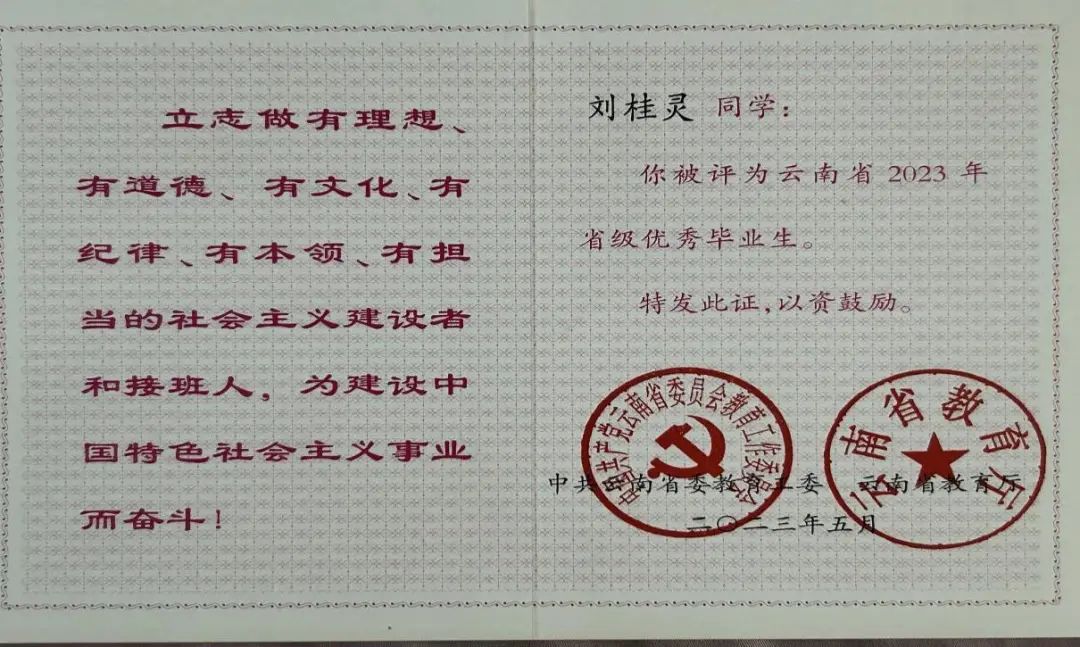 立志做有理想、
有道德、有文化、有
纪律、有本领、有担
当的社会主义建设者
和接班人，为建设中
国特色社会主义事业
而奋斗！
刘桂灵 同学：
你被评为云南省 2023 年
省级优秀毕业生。
特发此证，以资鼓励。
中国共产党云南省委员会教育工作委员会
云南省教育厅
中共云南省委教育工委 云南省教育厅
二〇二三年五月